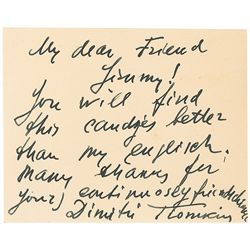 My dear Friend
Jimmy!
You will find
this candyes better
than my english.
Many thanks for
your continuosly friendship
Dimitri Tiomkin